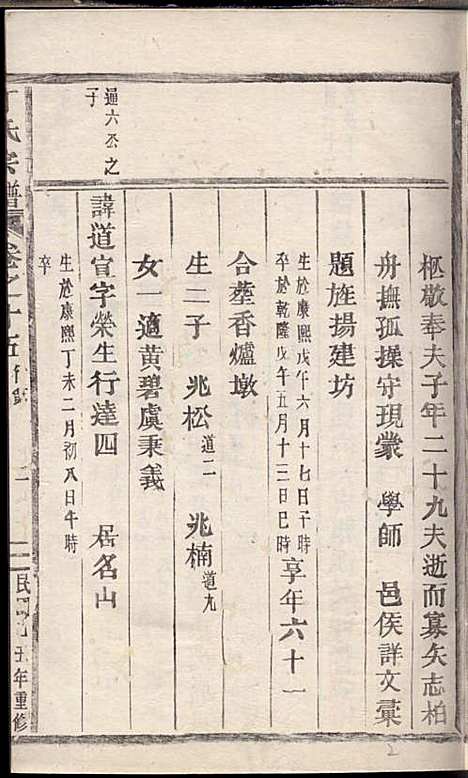 柩敬奉夫子年二十九夫逝而寡矢志柏
舟撫孤操守現蒙 學師 邑侯詳文彙
題旌揚建坊
生於康熙戊午六月十七日子時
卒於乾隆戊午五月十三日巳時
享年六十一
合塟香爐墩
生二子 兆松道二 兆楠道九
女一適黄碧虞秉義
通六公之
子
諱道宣字榮生行達四 居名山
生於康熙丁未二月初八日午時
卒
丁氏宗譜 卷之十五
一
民 丑年重修
2